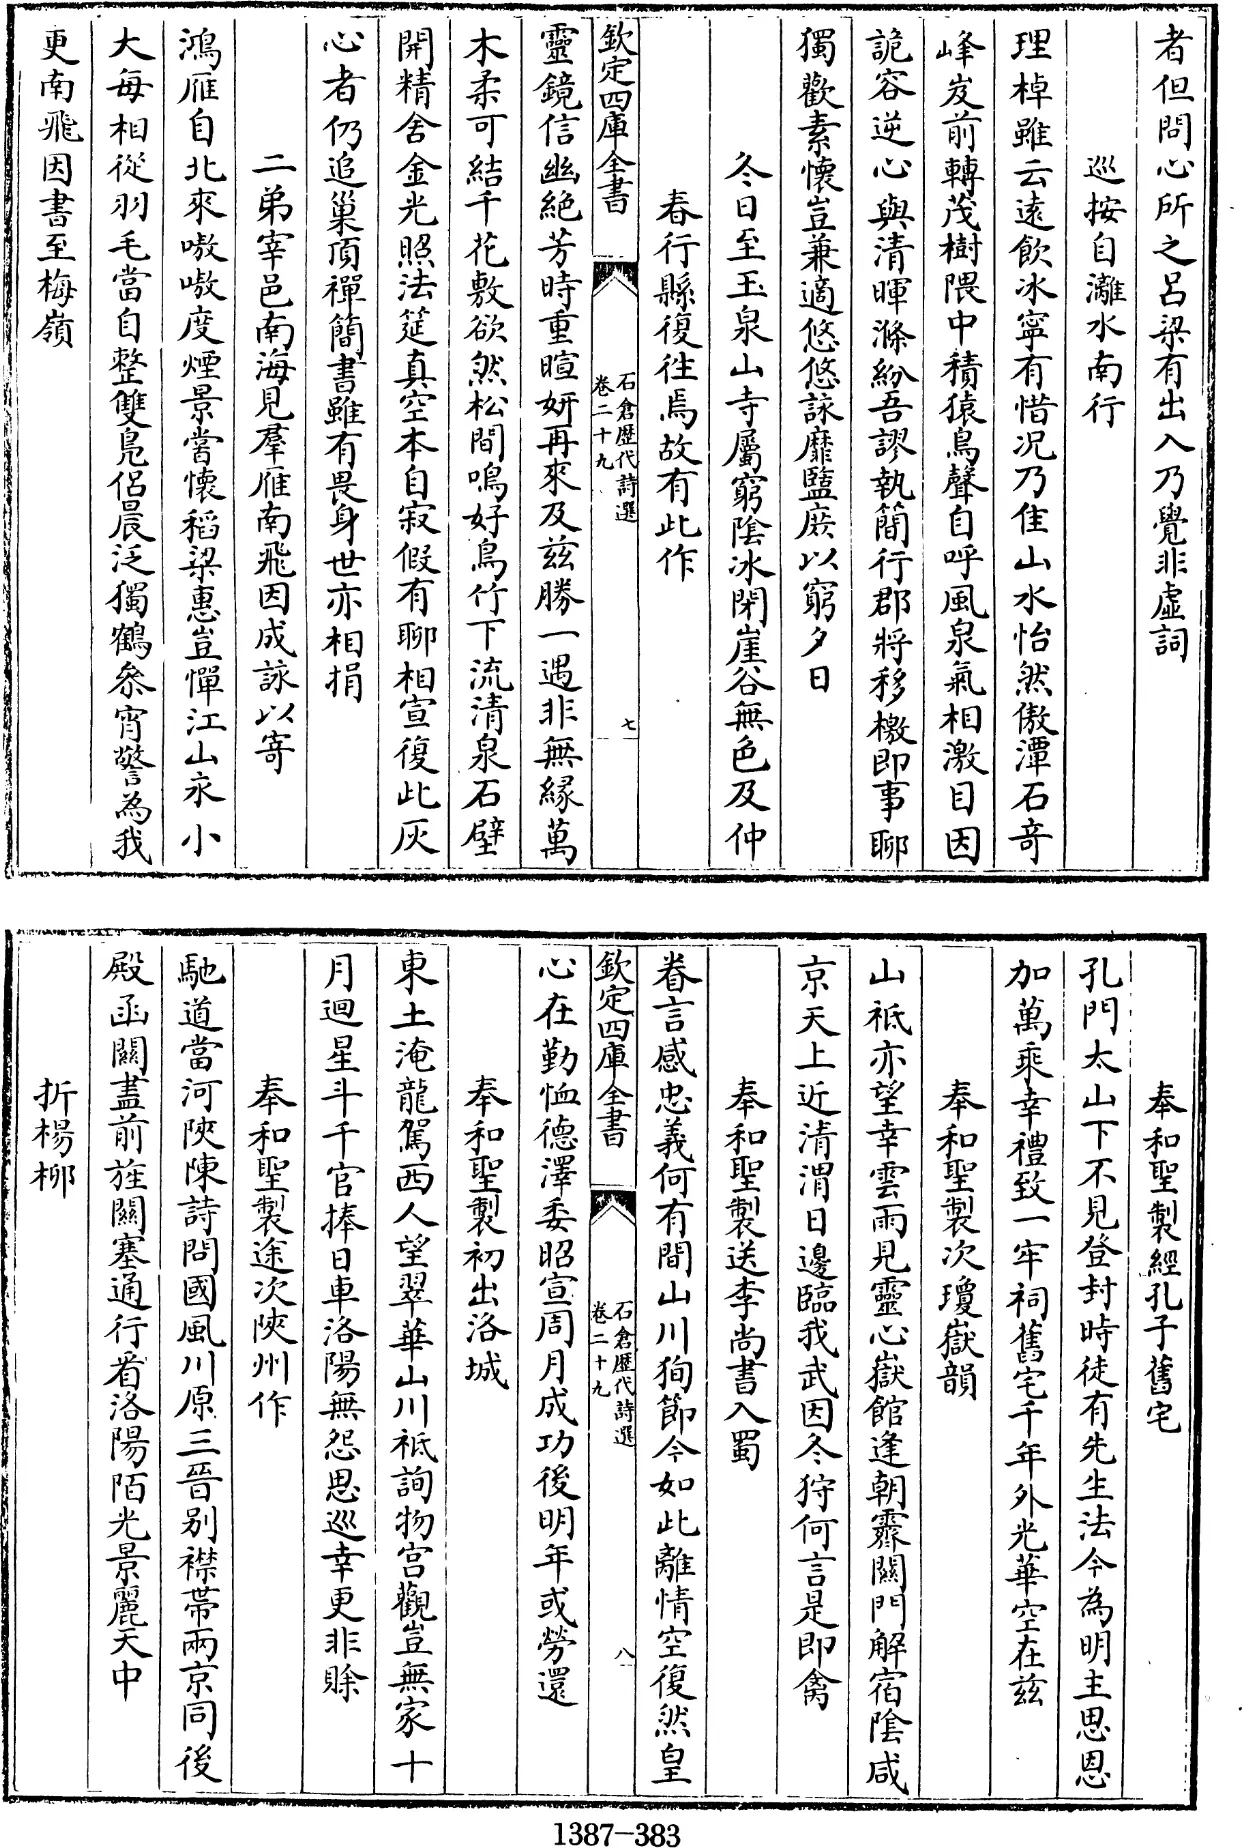 者但問心所之呂梁有出入乃覺非虛詞
巡按自灕水南行
理棹雖云遠飲冰寧有惜况乃佳山水怡然傲潭石竒
峰岌前轉茂樹隈中積猿鳥聲自呼風泉氣相激目因
詭容逆心與清暉滌紛吾謬執簡行郡將移檄即事聊
獨歡素懷豈兼適悠悠詠靡盬庻以窮夕日
冬日至玉泉山寺屬窮陰冰閉崖谷無色及仲
春行縣復徃焉故有此作
欽定四庫全書
石倉歴代詩選
卷二十九
七
靈鏡信幽絶芳時重暄妍再來及兹勝一遇非無緣萬
木柔可結千花敷欲然松間鳴好鳥竹下流清泉石壁
開精舍金光照法筵真空本自寂假有聊相宣復此灰
心者仍追巢頂禪簡書雖有畏身世亦相捐
二弟宰邑南海見羣雁南飛因成詠以寄
鴻雁自北來嗷嗷度煙景嘗懷稻梁惠豈憚江山永小
大每相從羽毛當自整雙鳬侣晨泛獨鶴叅宵警為我
更南飛因書至梅嶺
奉和聖製經孔子舊宅
孔門太山下不見登封時徒有先生法今為明主思恩
加萬乘幸禮致一牢祠舊宅千年外光華空在兹
奉和聖製次瓊嶽韻
山祗亦望幸雲雨見靈心嶽館逢朝霽關門解宿陰咸
京天上近清渭日邊臨我武因冬狩何言是即禽
奉和聖製送李尚書入蜀
眷言感忠義何有間山川狥節今如此離情空復然皇
欽定四庫全書
石倉歴代詩選
卷二十九
八
心在勤恤德澤委昭宣周月成功後明年或勞還
奉和聖製初出洛城
東土淹龍駕西人望翠華山川祗詢物宫觀豈無家十
月迴星斗千官捧日車洛陽無怨思巡幸更非賖
奉和聖製途次陝州作
馳道當河陝陳詩問國風川原三晉别襟帶兩京同後
殿函關盡前旌闗塞通行看洛陽陌光景麗天中
折楊柳
1387-383